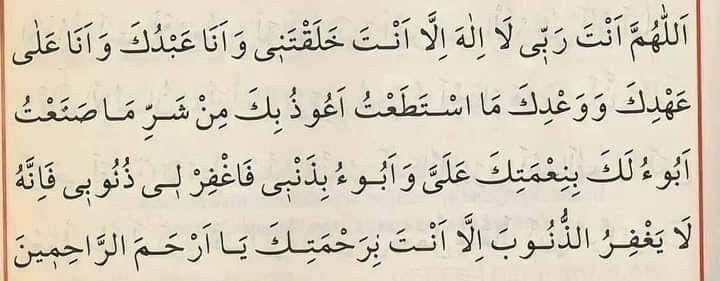 اَللّٰهُمَّ اَنْتَ رَبِّى لَا اِلٰهَ اِلَّا اَنْتَ خَلَقْتَنِى وَ اَنَا عَبْدُكَ وَ اَنَا عَلٰى
عَهْدِكَ وَ وَعْدِكَ مَا اسْتَطَعْتُ اَعُوذُ بِكَ مِنْ شَرِّ مَا صَنَعْتُ
اَبُوءُ لَكَ بِنِعْمَتِكَ عَلَىَّ وَ اَبُوءُ بِذَنْبِى فَاغْفِرْ لِى ذُنُوبِى فَاِنَّهُ
لَا يَغْفِرُ الذُّنُوبَ اِلَّا اَنْتَ بِرَحْمَتِكَ يَا اَرْحَمَ الرَّاحِمِينَ